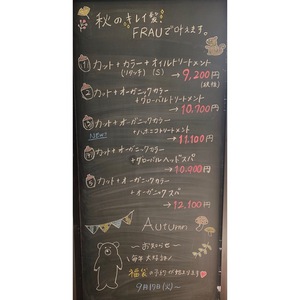 秋のキレイ髪
FRAUで叶えます。
① カット+カラー+オイルトリートメント
(リタッチ) (S) → 9,200円
(税抜)
② カット+オーガニックカラー
+グローバルトリートメント
→ 10,700円
③ カット+オーガニックカラー
NEW! +ハホニコトリートメント
→ 11,100円
④ カット+オーガニックカラー
+グローバルヘッドスパ
→ 10,900円
⑤ カット+オーガニックカラー
+オーガニックスパ
→ 12,100円
Autumn
〜お知らせ〜
毎年大好評!
福袋の予約が始まります
9月17日(火)〜